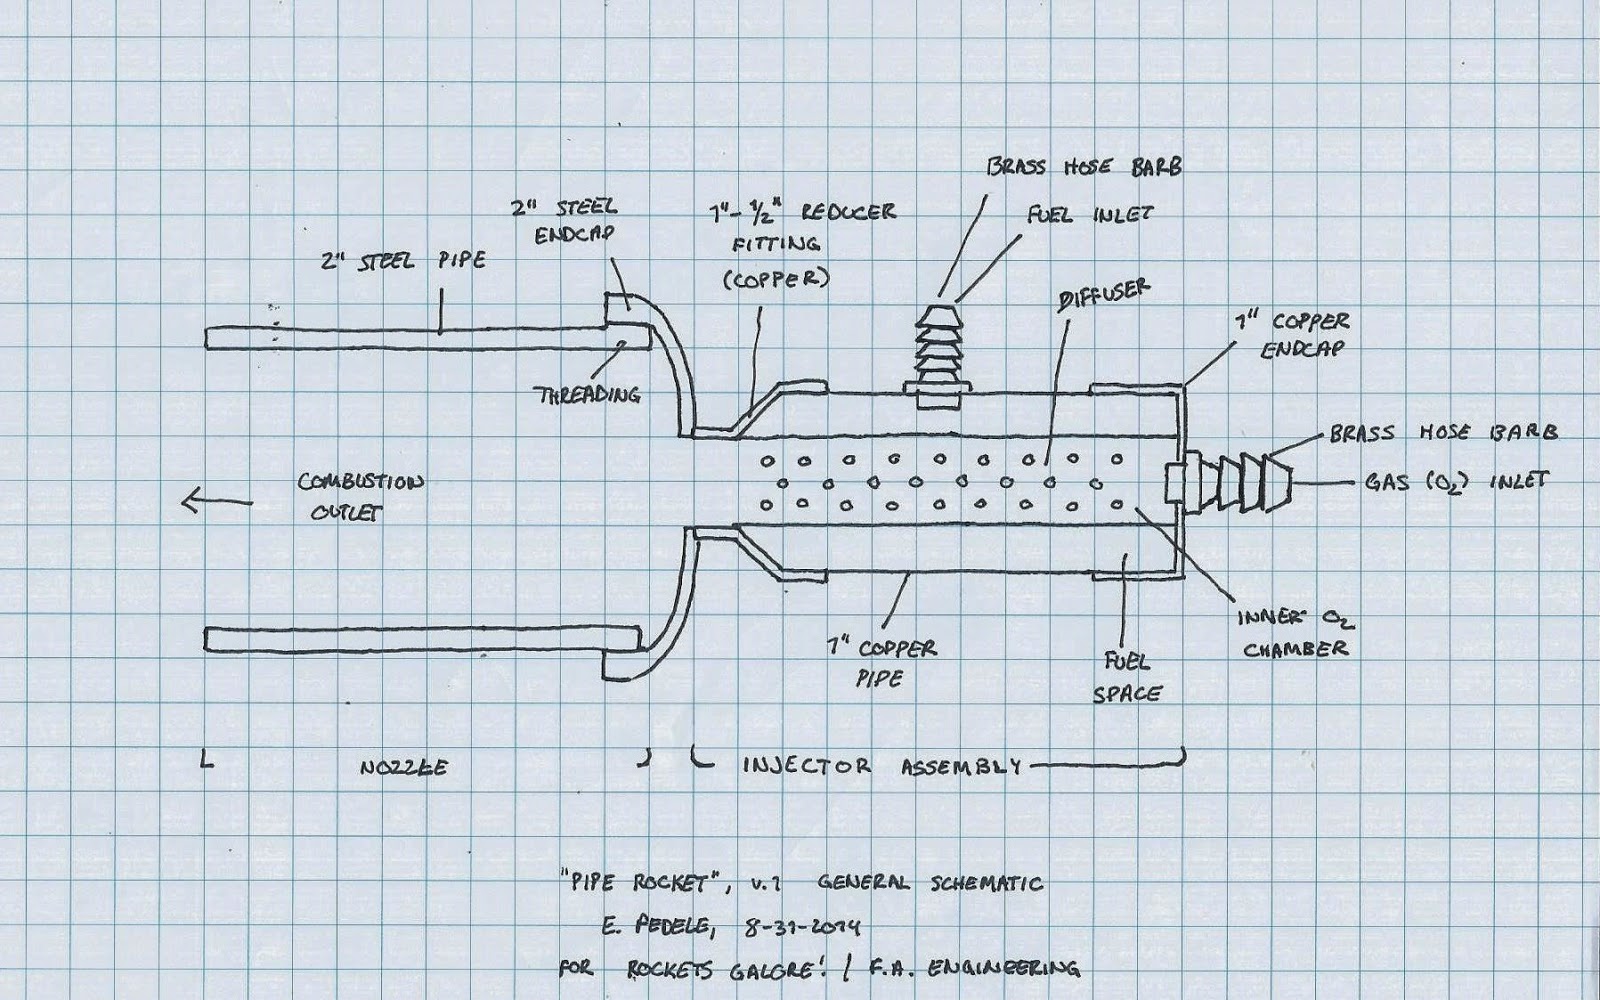 BRASS HOSE BARB
FUEL INLET
2" STEEL
ENDCAP
1"-1/2" REDUCER
FITTING
(COPPER)
2" STEEL PIPE
DIFFUSER
1" COPPER
ENDCAP
THREADING
BRASS HOSE BARB
GAS (O2) INLET
COMBUSTION
OUTLET
INNER O2
CHAMBER
1" COPPER
PIPE
FUEL
SPACE
NOZZLE
INJECTOR ASSEMBLY
"PIPE ROCKET", v.1 GENERAL SCHEMATIC
E. FEDELE, 8-31-2014
FOR ROCKETS GALORE! / F.A. ENGINEERING